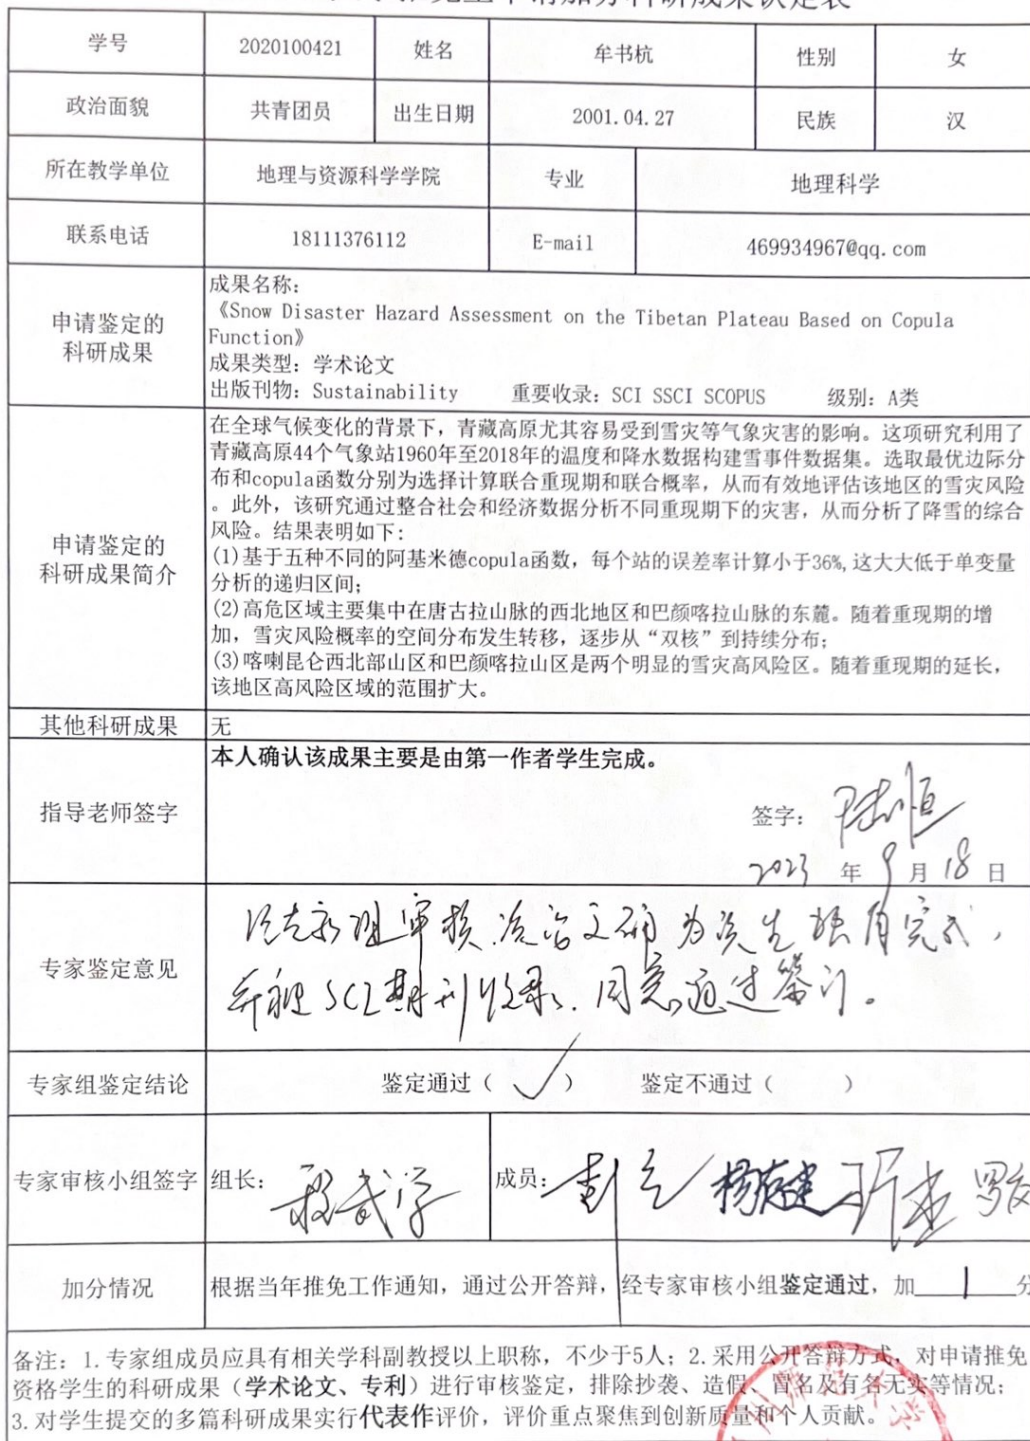 免生申请加分科研成果认定表
学号 2020100421 姓名 牟书杭 性别 女
政治面貌 共青团员 出生日期 2001.04.27 民族 汉
所在教学单位 地理与资源科学学院 专业 地理科学
联系电话 18111376112 E-mail 469934967@qq.com
申请鉴定的
科研成果
成果名称:
《Snow Disaster Hazard Assessment on the Tibetan Plateau Based on Copula
Function》
成果类型: 学术论文
出版刊物: Sustainability 重要收录: SCI SSCI SCOPUS 级别: A类
申请鉴定的
科研成果简介
在全球气候变化的背景下，青藏高原尤其容易受到雪灾等气象灾害的影响。这项研究利用了
青藏高原44个气象站1960年至2018年的温度和降水数据构建雪事件数据集。选取最优边际分
布和copula函数分别为选择计算联合重现期和联合概率，从而有效地评估该地区的雪灾风险
。此外，该研究通过整合社会和经济数据分析不同重现期下的灾害，从而分析了降雪的综合
风险。结果表明如下:
(1)基于五种不同的阿基米德copula函数，每个站的误差率计算小于36%,这大大低于单变量
分析的递归区间;
(2)高危区域主要集中在唐古拉山脉的西北地区和巴颜喀拉山脉的东麓。随着重现期的增
加，雪灾风险概率的空间分布发生转移，逐步从“双核”到持续分布;
(3)喀喇昆仑西北部山区和巴颜喀拉山区是两个明显的雪灾高风险区。随着重现期的延长，
该地区高风险区域的范围扩大。
其他科研成果 无
指导老师签字
本人确认该成果主要是由第一作者学生完成。
签字:
2023 年 9 月 18 日
专家鉴定意见
审核, 该论文确为该生独自完成，
并被SCI期刊收录. 同意通过鉴定。
专家组鉴定结论 鉴定通过（ ✓ ） 鉴定不通过（ ）
专家审核小组签字 组长: 成员:
加分情况 根据当年推免工作通知，通过公开答辩，经专家审核小组鉴定通过，加 1 分
备注: 1.专家组成员应具有相关学科副教授以上职称，不少于5人; 2.采用公开答辩方式，对申请推免
资格学生的科研成果（学术论文、专利）进行审核鉴定，排除抄袭、造假、冒名及有名无实等情况;
3.对学生提交的多篇科研成果实行代表作评价，评价重点聚焦到创新质量和个人贡献。